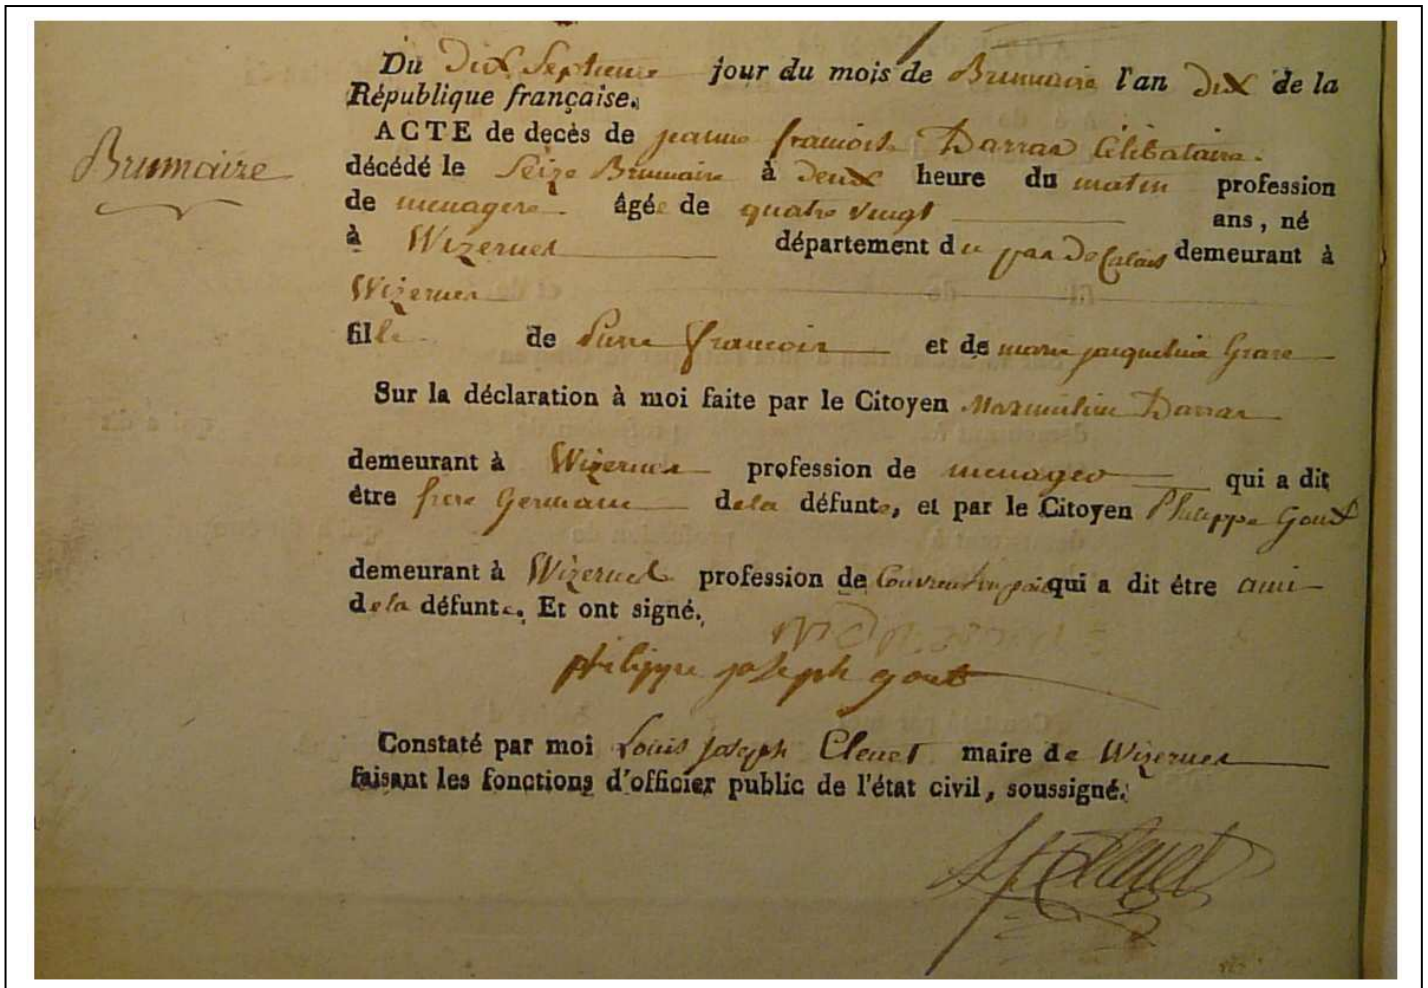 Du Dix Septieme jour du mois de Brumaire l'an Dix de la
République française.
ACTE de decès de jeanne francoise Darras Célibataire.
Brumaire
décédé le Seize Brumaire à Deux heure du matin profession
de menagere âgée de quatre vingt ans, né
à Wizernes département du pas De Calais demeurant à
Wizernes
fille de Pierre francois et de marie jacqueline Grare
Sur la déclaration à moi faite par le Citoyen Maximilien Darras
demeurant à Wizernes profession de menager qui a dit
être frere Germain dela défunte, et par le Citoyen Philippe Gout
demeurant à Wizernes profession de qui a dit être ami
dela défunte. Et ont signé.
philippe joseph gout
Constaté par moi Louis Joseph Clenet maire de Wizernes
faisant les fonctions d'officier public de l'état civil, soussigné.